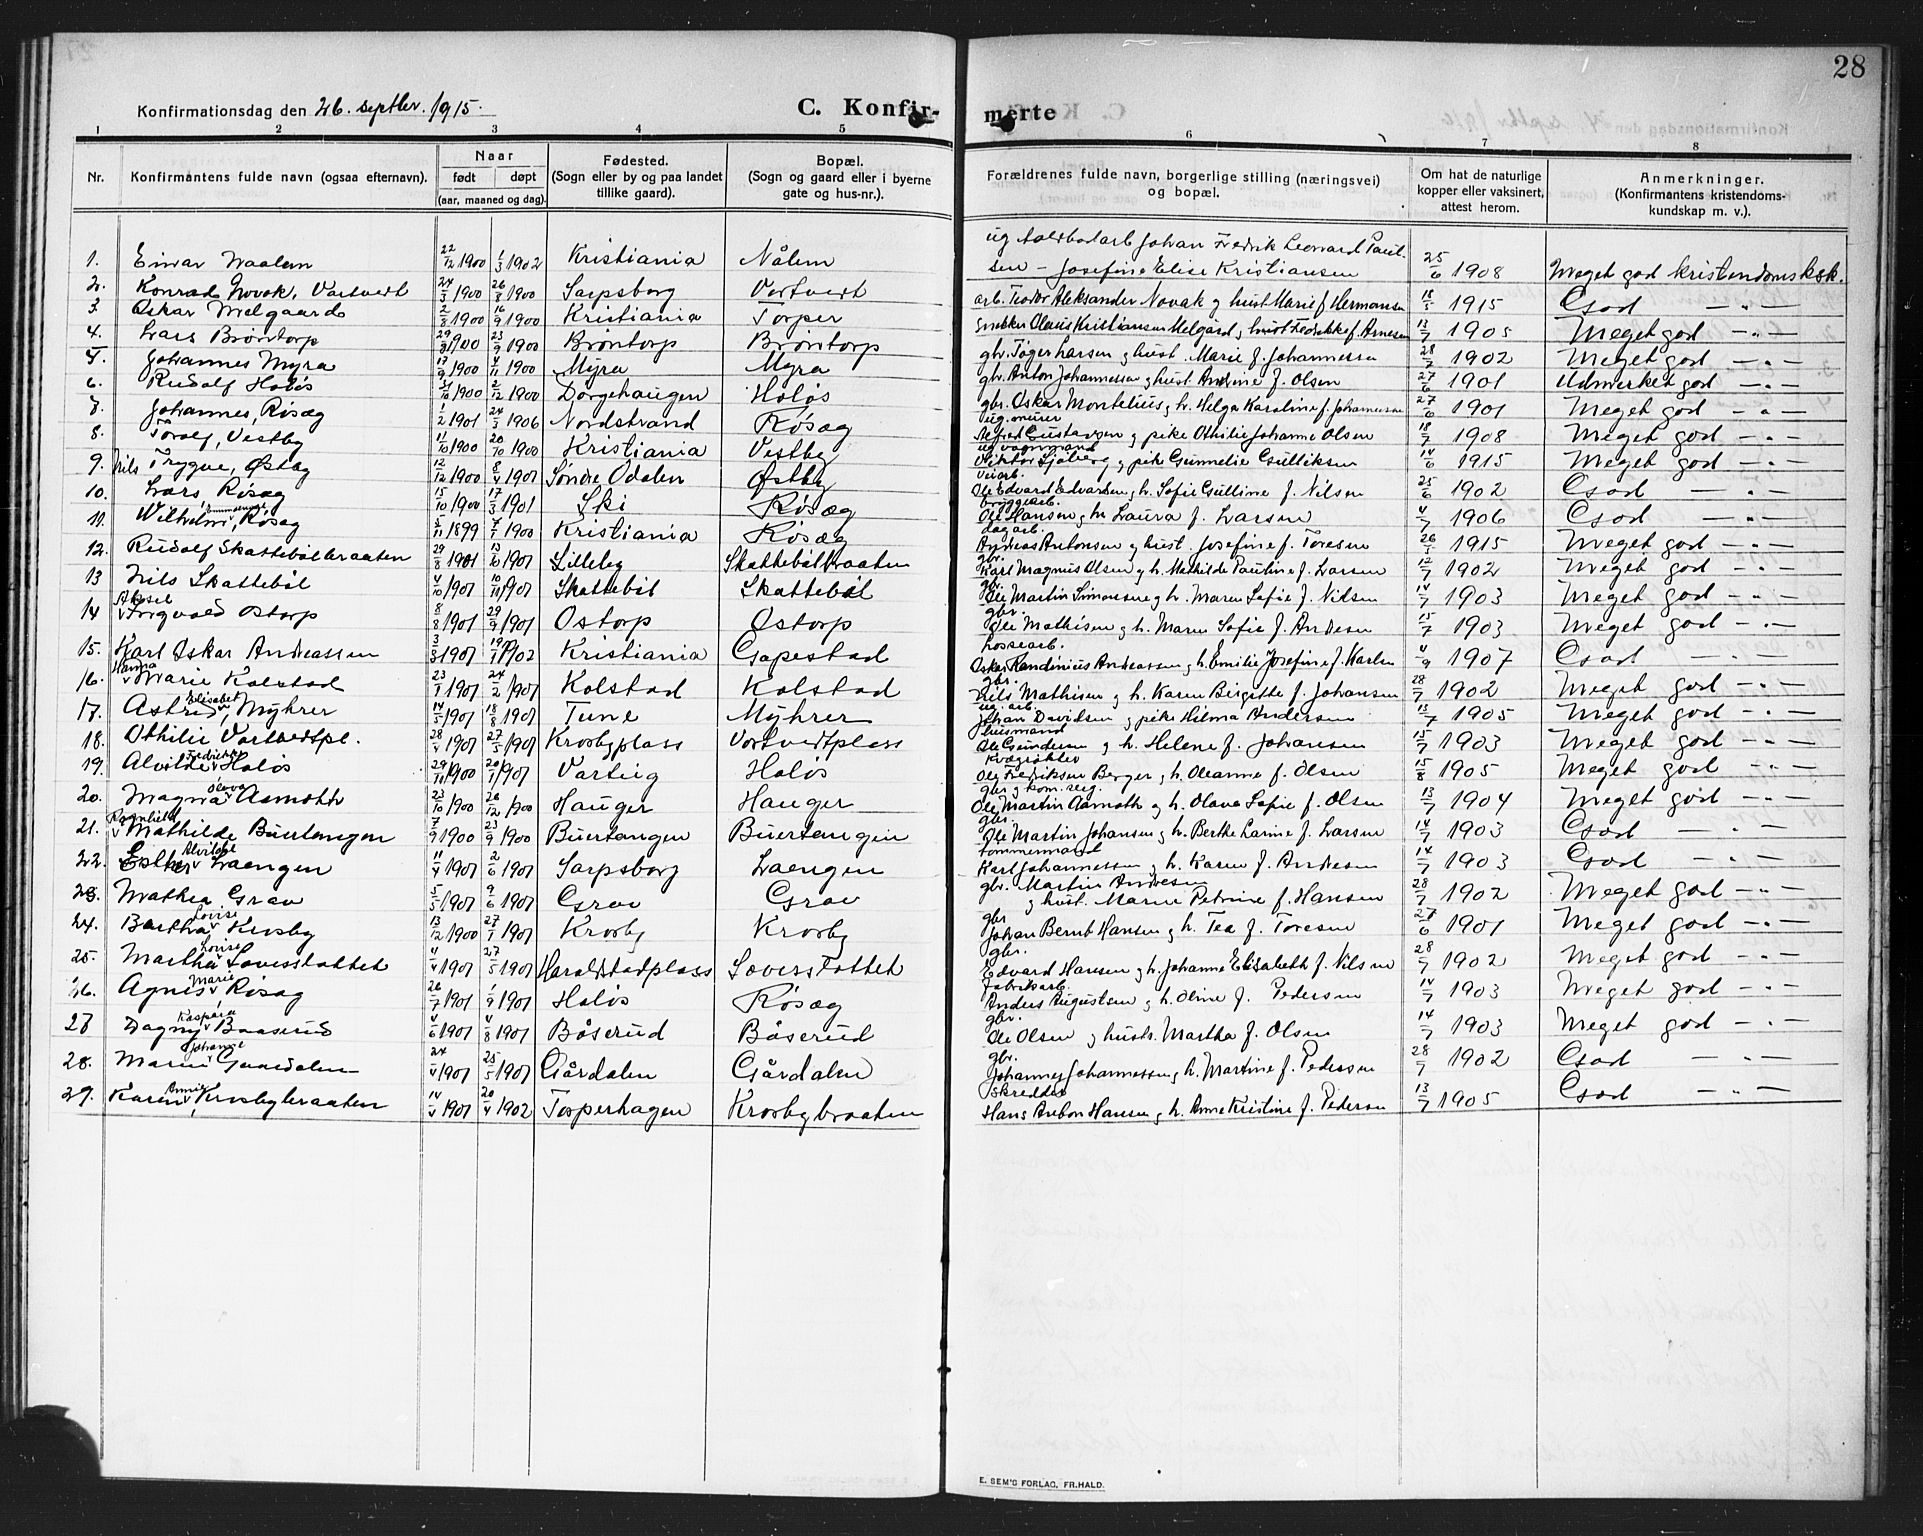 28
Konfirmationsdag den 26. septbr. 1915.
C. Konfir-
merte
1 2 3 4 5 6 7 8
Nr.
Konfirmantens fulde navn (ogsaa efternavn).
Naar
født døpt
(aar, maaned og dag).
Fødested.
(Sogn eller by og paa landet
tillike gaard).
Bopæl.
(Sogn og gaard eller i byerne
gate og hus-nr.).
Forældrenes fulde navn, borgerlige stilling (næringsvei)
og bopæl.
Om hat de naturlige
kopper eller vaksinert,
attest herom.
Anmerkninger.
(Konfirmantens kristendoms-
kundskap m. v.).
1. Einar Naalem 22/12 1900 1/3 1902 Kristiania Nålem ug Johan Fredrik Leonard Paul-
sen - Josefine Elise Kristiansen 25/6 1908 Meget god kristendomsksk.
2. Konrad Novak, Vortvedt 24/3 1900 26/8 1900 Sarpsborg Vortvedt arb. Teodor Aleksander Novak g hust Marie f. Hermansen 18/5 1915 God — " —
3. Oskar Melgaard 2/8 1900 16/9 1900 Kristiania Torper Snekker Olaus Kristiansen Melgård g hust Fredrikke f. Arnesen 13/7 1905 Meget god — " —
4. Lars Bröntorp 29/8 1900 23/9 1900 Bröntorp Bröntorp gbr. Töger Larsen g hust. Marie f. Johannessen 28/7 1902 Meget god — " —
5. Johannes Myra 17/9 1900 4/11 1900 Myra Myra gbr. Anton Johannessen g hust. Andrine f. Olsen 27/6 1901 Udmerket god — " —
6. Rudolf Holös 31/10 1900 2/12 1900 Dörgehaugen Holös gbr. Oskar Montelius g h. Helga Karoline f. Johannessen 27/6 1901 Meget god — " —
7. Johannes, Rösæg 1/2 1901 24/3 1906 Nordstrand Rösæg ug. murer
Alfred Gustavsen g pike Othilie Johanne Olsen 18/7 1908 Meget god — " —
8. Toralf, Vestby 11/10 1900 20/10 1900 Kristiania Vestby ug vognmand
Viktor Sjöberg g pike Gunnelie Gulliksen 14/6 1915 Meget god — " —
9. Nils Trygve, Østby 12/12 1900 8/4 1901 Søndre Odalen Østby Veiarb.
Ole Edvard Edvardsen g h. Sofie Gulline f. Nilsen 25/6 1902 God — " —
10. Lars, Rösæg 15/10 1900 17/3 1901 Ski Rösæg Bryggearb.
Ole Hansen g h. Laura f. Larsen 4/7 1906 God — " —
11. Wilhelm, Rösæg 5/11 1899 7/1 1900 Kristiania Rösæg dagarb.
Andreas Antonsen g hust. Josefine f. Toresen 26/5 1915 Meget god — " —
12. Rudolf Skattebölbraaten 29/8 1901 13/10 1901 Lilleby Skattebölbraaten gbr.
Karl Magnus Olsen g h. Mathilde Pauline f. Larsen 12/7 1902 Meget god — " —
13 Nils Skatteböl 4/10 1901 10/11 1901 Skatteböl Skatteböl gbr.
Ole Martin Simonsen g h. Maren Sofie f. Nilsen 14/7 1903 Meget god — " —
14 Aksel Ingvald Ostorp 8/8 1901 29/9 1901 Ostorp Ostorp gbr.
Ole Mathisen g h. Maren Sofie f. Andersen 15/7 1903 Meget god — " —
15. Karl Oskar Andreassen 3/3 1901 19/1 1902 Kristiania Gapestad Lossearb.
Oskar Kandinius Andreassen g h. Emilie Josefine f. Karlsen 4/9 1907 God — " —
16. Hanna Marie Kolstad 23/1 1901 24/2 1901 Kolstad Kolstad gbr.
Nils Mathisen g h. Karen Birgitte f. Johansen 28/7 1902 Meget god — " —
17. Astrid Elisabet, Mÿhrer 14/5 1901 18/8 1901 Tune Mÿhrer ug. arb.
Johan Davidsen g pike Hilma Andersen 13/7 1905 Meget god — " —
18. Othilie Vortvedtpl. 28/4 1901 27/5 1901 Krosbyplass Vortvedtplass Husmand
Ole Gundersen g h. Helene f. Johansen 15/7 1903 Meget god — " —
19. Alvilde Fredrikke Holös 29/11 1900 20/1 1901 Varteig Holös Kvægrökter
Ole Fredriksen Berger g h. Oleanne f. Olsen 15/8 1905 Meget god — " —
20. Magna Olova Aamoth 23/10 1900 26/12 1900 Hauger Hauger gbr g kom. reg.
Ole Martin Aamoth g h. Olava Sofie f. Olsen 13/7 1904 Meget god — " —
21. Ragnhild Mathilde Buertangen 7/9 1900 23/9 1900 Buertangen Buertangen gbr.
Ole Martin Johansen g h. Berthe Larine f. Larsen 14/7 1903 God — " —
22. Ester Alvilde Laengen 11/4 1901 2/6 1901 Sarpsborg Laengen Tömmermand
Karl Johannessen g h. Karen f. Andersen 14/7 1903 God — " —
23. Mathea Grav 5/5 1901 9/6 1901 Grav Grav gbr. Martin Andresen
g hust. Maren Petrine f. Hansen 28/7 1902 Meget god — " —
24. Bertha Lovise Krosby 13/12 1900 27/1 1901 Krosby Krosby gbr
Johan Bernt Hansen g h. Tea f. Toresen 27/6 1901 Meget god — " —
25. Martha Lovise Soverstottet 4/4 1901 27/5 1901 Haraldstadplass Soverstottet gbr.
Edvard Hansen g h. Johanne Elisabeth f. Nilsen 28/7 1902 Meget god — " —
26. Agnes Marie Rösæg 26/7 1901 1/9 1901 Holös Rösæg Fabrikarb.
Anders Augustsen g h. Oline f. Pedersen 14/7 1903 Meget god — " —
27 Dagny Kaspara Baaserud 4/6 1901 4/8 1901 Båserud Båserud gbr.
Ole Olsen g hust. Martha f. Olsen 14/7 1903 Meget god — " —
28. Maren Johanne Gaardalen 24/4 1901 25/5 1901 Gårdalen Gårdalen gbr.
Johannes Johannessen g h. Martine f. Pedersen 28/7 1902 God — " —
29. Karen Annie Krosbybraaten 14/4 1901 20/4 1902 Torperhagen Krosbybraaten Skredder
Hans Anton Hansen g h. Anne Kristine f. Pedersen 13/7 1905 God — " —
E. SEM'S FORLAG, FR.HALD.